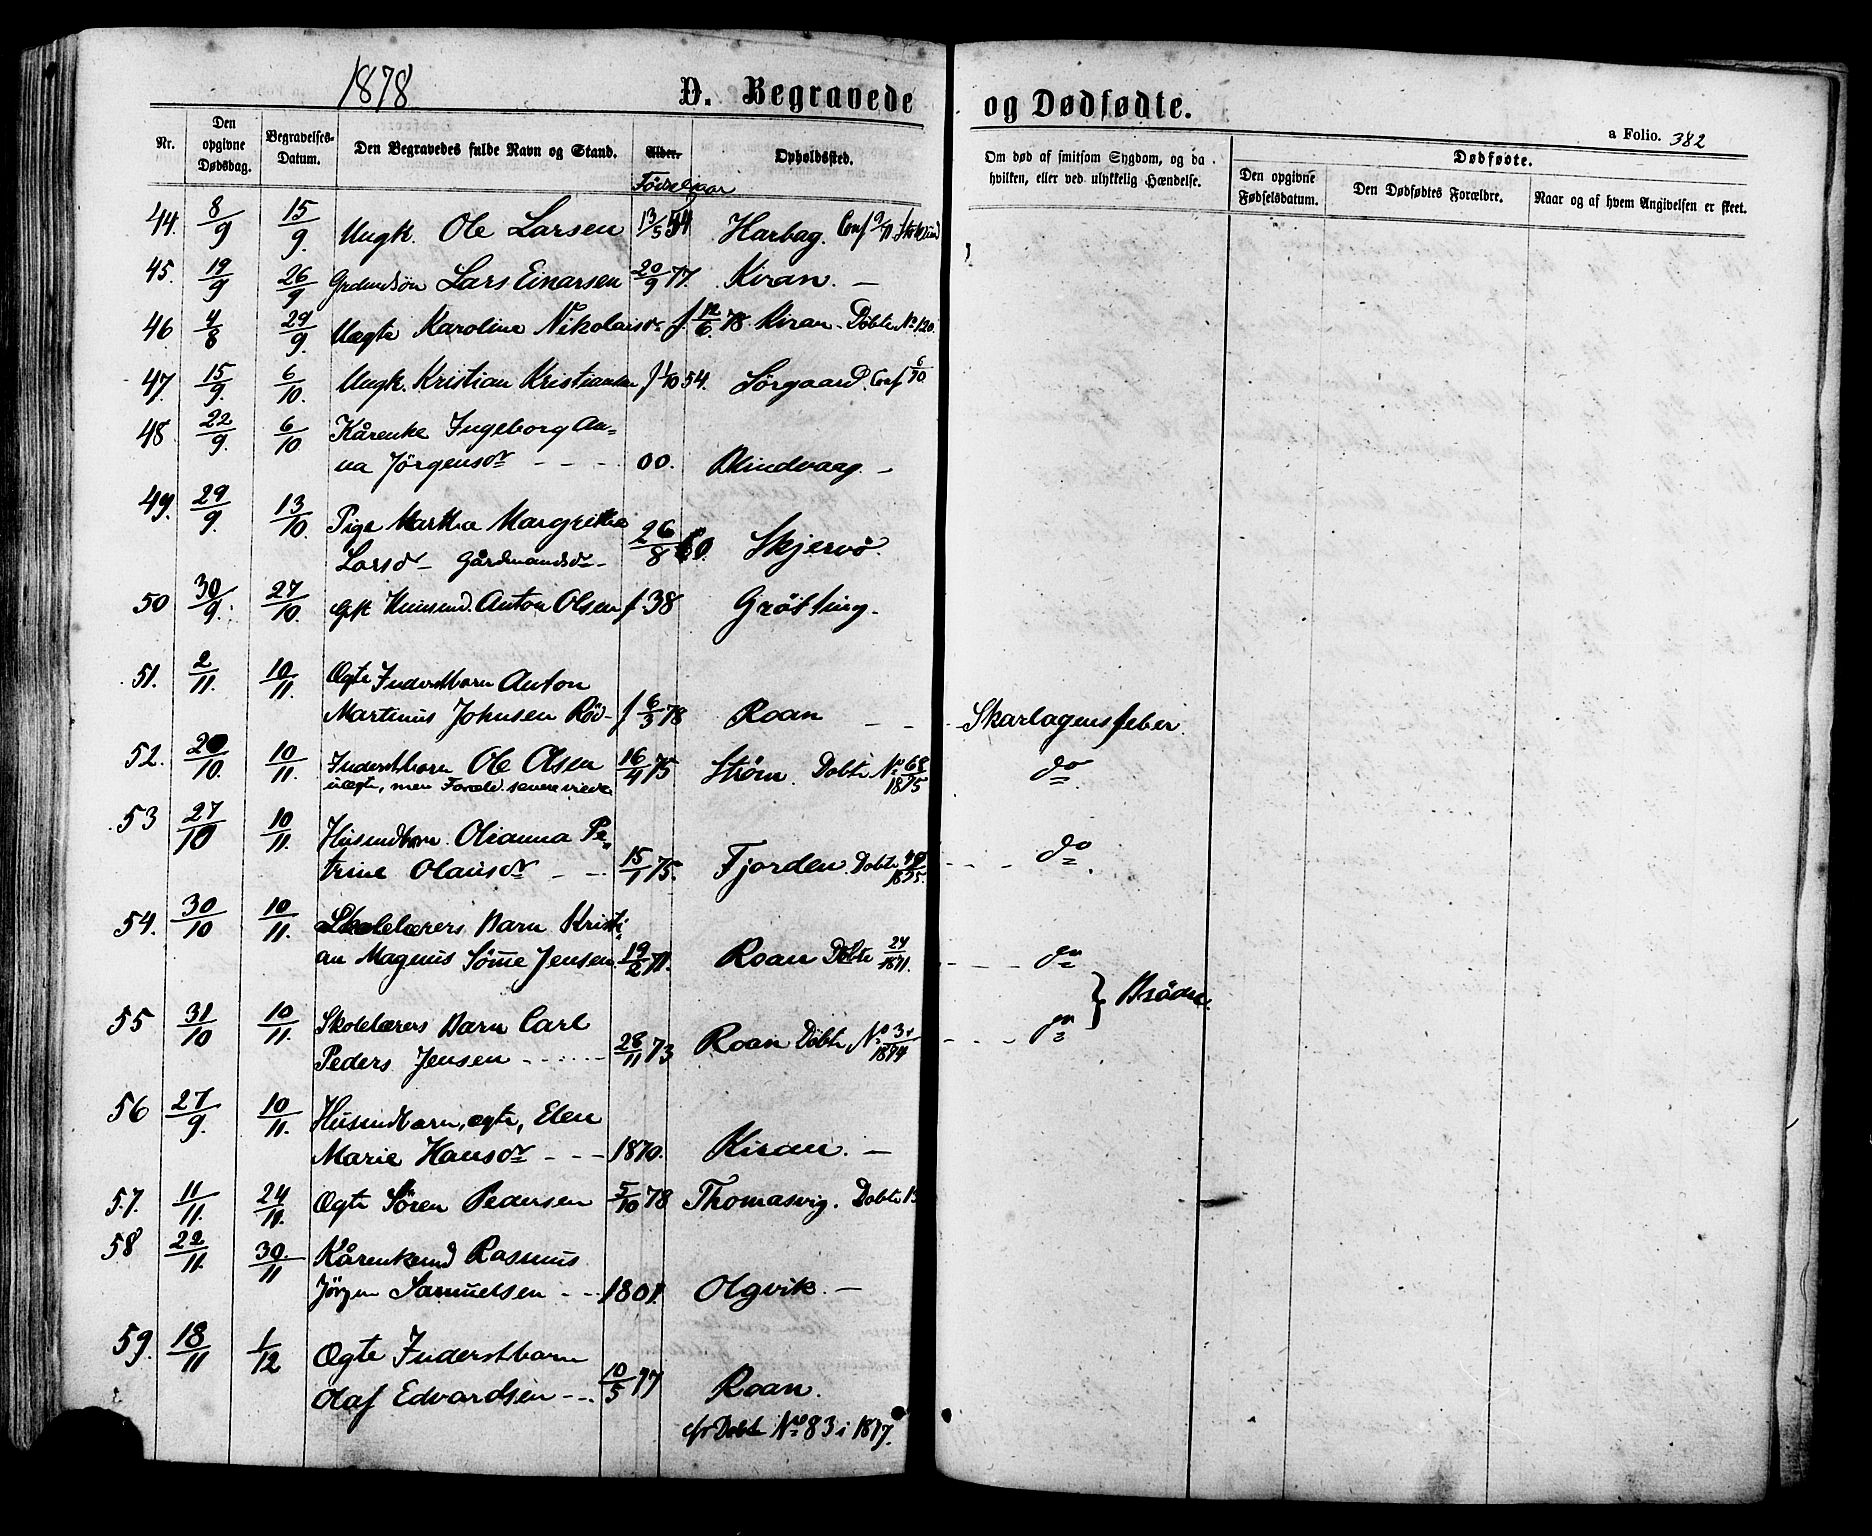 1878
D. Begravede og Dødfødte.
a Folio. 382
Nr.
Den opgivne Dødsdag.
Begravelses-Datum.
Den Begravedes fulde Navn og Stand.
Alder.
Fødselsaar
Opholdssted.
Om død af smitsom Sygdom, og da hvilken, eller ved ulykkelig Hændelse.
Dødfødte.
Den opgivne Fødselsdatum.
Den Dødfødtes Forældre.
Naar og af hvem Angivelsen er skeet.
44. 8/9 15/9 Ungk. Ole Larsen 13/5 54 Harbag. Conf 9/71. Stoksund
45. 19/9 26/9 Grdmdsøn Lars Einarsen 20/9 77. Kiran. —
46 4/8 29/9. Uægte Karoline Nikolaisdr f. 12/6. 78. Kiran - Døbte No 120.
47. 15/9. 6/10. Ungk. Kristian Kristiansen f 1/10 54. Sørgaard. Conf 6/70
48 22/9. 6/10 Kårenke Ingeborg An=
na Jørgensdr - - - 00. Blindvaag. —
49. 29/9. 13/10. Pige Martha Margretha
Larsdr - Gårdmandsdr - 26/8 60. Skjervö.
50 30/9. 27/10. Gft Husmd. Anton Olsen f. 38 Grötting.
51. 2/11. 10/11. Ægte Inderstbarn Anton
Martinus Johnsen Röd- f 6/3 78 Roan - - - Skarlagensfeber.
52. 20/10. 10/11. Inderstbarn Ole Olsen 16/4 75 Strøm. Døbte No 68/1875 do
uægte, men Foræld. senere viede
53 27/10 10/11. Husmdbarn. Olianna Pe=
trine Olausdr - - 15/1 75. Fjorden. Døbte 40/1875. - - - do
54. 30/10 10/11. Skolelærers Barn Kristi=
an Magnus Sömme Jensen. 19/2 71. Roan Døbte 24/1871. - - - do
} Brödre.
55 31/10 10/11. Skolelærers Barn Carl
Peders Jensen - - - - 28/11 73 Roan Døbte No 3/1874 - - - do
56 27/9. 10/11. Husmdbarn, ægte, Elen
Marie Hansdr - - - 1870. Kiran. —
57. 11/11. 24/11. Ægte Sören Pedersen 5/10 78 Thomasvig. Døbte
58 22/11. 30/11 Kårenkemd Rasmus
Jörgen Samuelsen - - 1801. Olgvik. —
59. 18/11 1/12 Ægte Inderstbarn
Olaf Edvardsen - - . 10/5 77 Roan.
cfr Døbte No 83 i 1877.